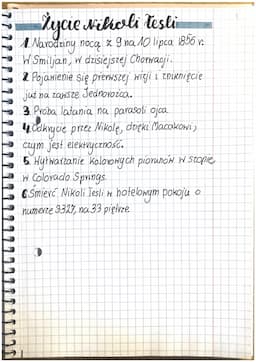 Życie Nikoli Tesli
1. Narodziny nocą z 9 na 10 lipca 1856 r.
W Smiljan, w dzisiejszej Chorwacji.
2. Pojawienie się pierwszej wizji i zniknięcie
już na zawsze Jednorożca.
3. Próba latania na parasolu ojca.
4. Odkrycie przez Nikolę, dzięki Macakowi,
czym jest elektryczność.
5. Wytwarzanie kolorowych piorunów w szopie
w Colorado Springs.
6. Śmierć Nikoli Tesli w hotelowym pokoju o
numerze 3327, na 33 piętrze